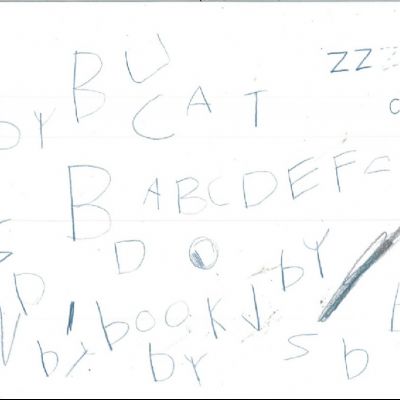 BU
ZZ
CAT
OY
B ABCDEFG
D
by
D
book
by
by
S
b